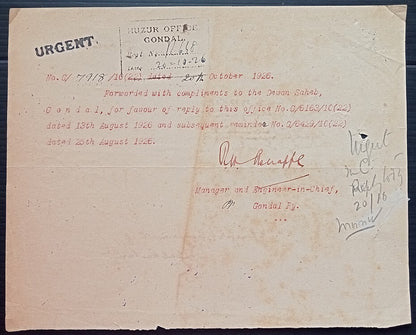 URGENT.
HUZUR OFFICE
GONDAL.
No.G/7913/16(22), dated 20th October 1926.
Forwarded with compliments to the Dewan Saheb,
Gondal, for favour of reply to this office No.G/6163/16(22)
dated 13th August 1926 and subsequent reminder No.G/6429/16(22)
dated 25th August 1926.
Manager and Engineer-in-Chief,
Gondal Ry.
...
Urgent
20/10